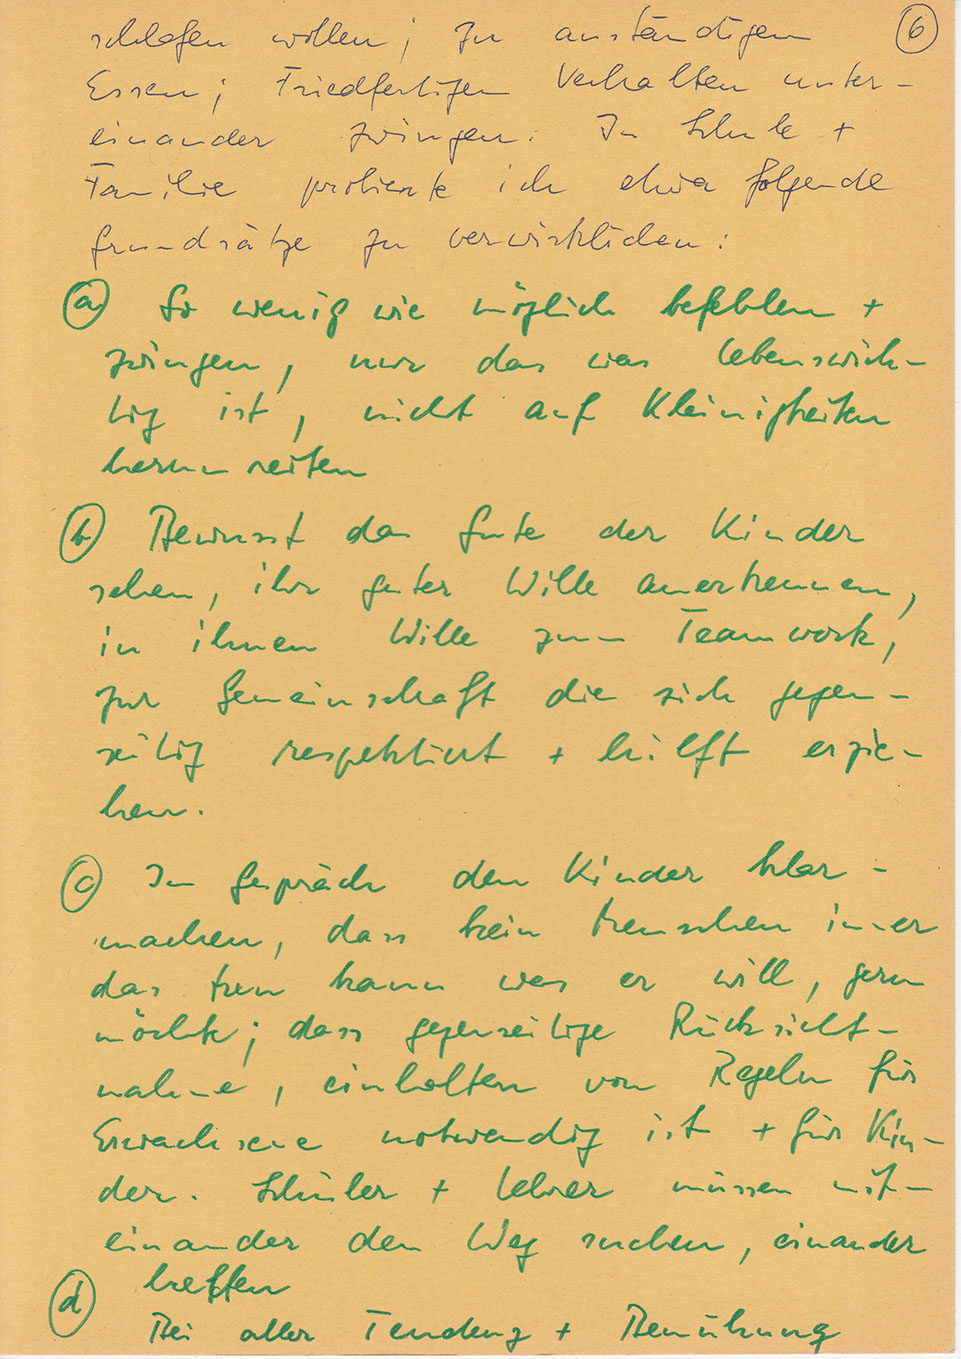 6
schlafen wollen; zu anständigem
Essen; Friedfertigem Verhalten unter-
einander zwingen. In Schule +
Familie probierte ich etwa folgende
Grundsätze zu verwirklichen:
a So wenig wie möglich befehlen +
zwingen, nur das was lebenswich-
tig ist, nicht auf Kleinigkeiten
herum reiten
b Bewusst das Gute der Kinder
sehen, ihr guter Wille anerkennen,
in ihnen Wille zum Teamwork,
zur Gemeinschaft die sich gegen-
seitig respektiert + hilft erzie-
hen.
c Im Gespräch den Kinder klar-
machen, dass kein Menschen immer
das tun kann was er will, gern
möchte; dass gegenseitige Rücksicht-
nahme, einhalten von Regeln für
Erwachsene notwendig ist + für Kin-
der. Schüler + Lehrer müssen mit-
einander den Weg suchen, einander
helfen
d Bei aller Tendenz + Bemühung